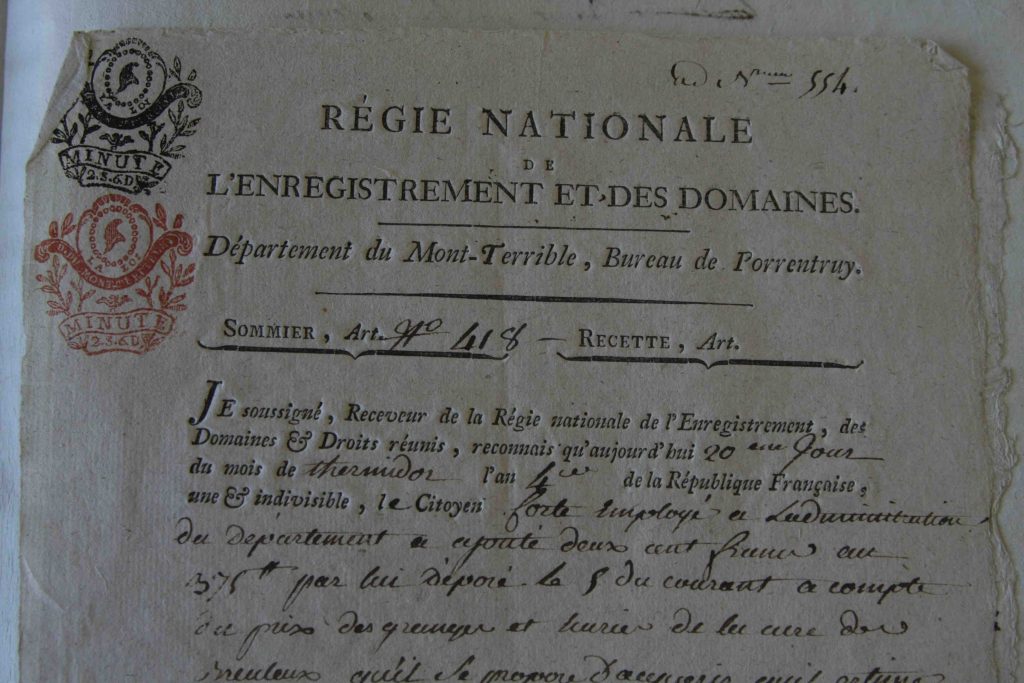 554.
LA LOI
MINUTE
2.S.6.D
RÉGIE NATIONALE
DE
L'ENREGISTREMENT ET DES DOMAINES.
LA LOI
MINUTE
2.S.6.D
Département du Mont-Terrible, Bureau de Porrentruy.
SOMMIER, Art. No 418 — RECETTE, Art.
JE soussigné, Receveur de la Régie nationale de l'Enregistrement, des
Domaines & Droits réunis, reconnais qu'aujourd'hui 20 eme Jour
du mois de thermidor l'an 4 de la République Française,
une & indivisible, le Citoyen forte Employé a Ladministration
du département a ajouté deux cent francs au
375 tt par lui déposé le 5 du courant a compte
du prix des granges et de la cure des
Breuleux qu'il se propose D'acquerir